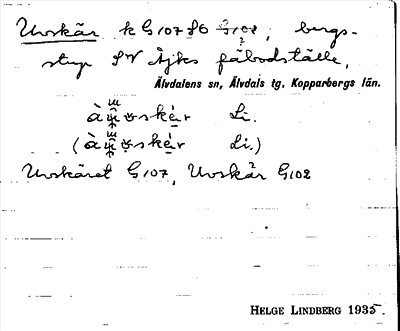 Uvskär k G107 SO G102, bergs-
stup SV Åjks fäbodställe,
Älvdalens sn, Älvdals tg. Kopparbergs län.
Li.
Li.)
Uvskäret G107, Uvskär G102
HELGE LINDBERG 1935.